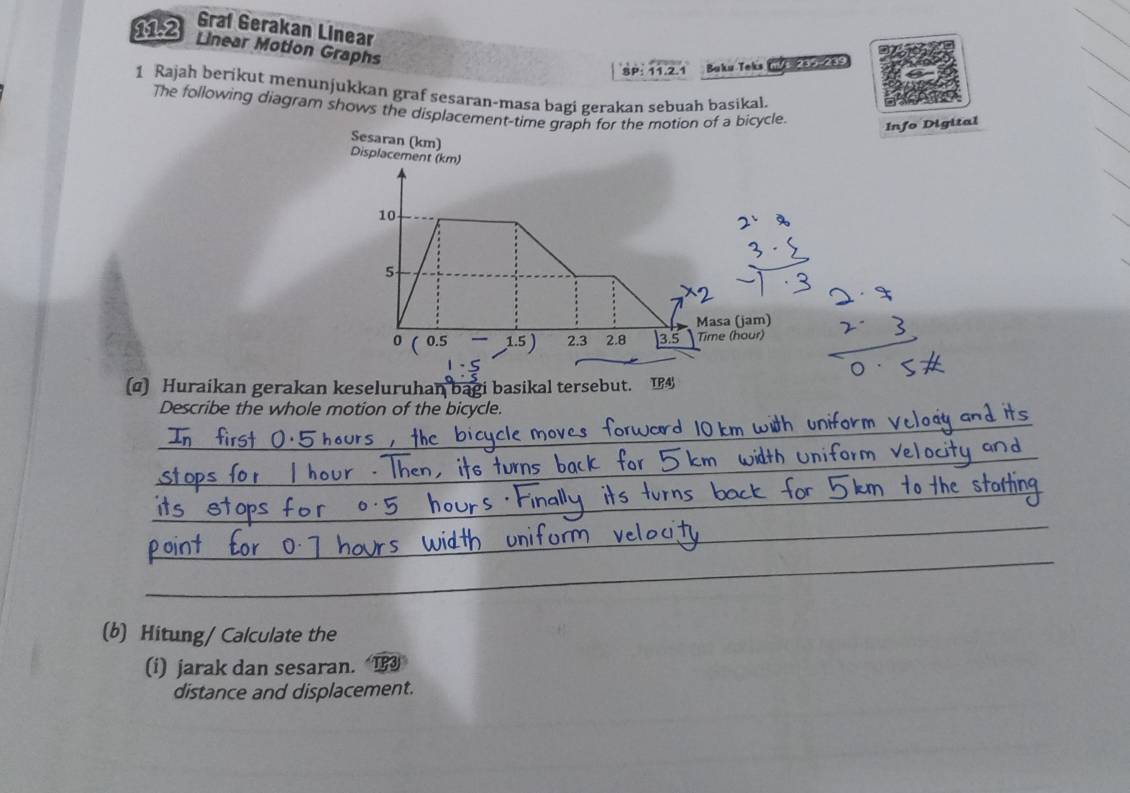 11.2 Graf Gerakan Linear
Linear Motion Graphs
SP: 11.2.1 Buku Teks m/s 235–239
1 Rajah berikut menunjukkan graf sesaran-masa bagi gerakan sebuah basikal.
The following diagram shows the displacement-time graph for the motion of a bicycle.
Info Digital
Sesaran (km)
Displacement (km)
10
5
Masa (jam)
Time (hour)
0 ( 0.5 – 1.5 ) 2.3 2.8 3.5
×2
3.5
-1.3
2.3
0.5#
1.5
0.5
(a) Huraikan gerakan keseluruhan bagi basikal tersebut. TP4
Describe the whole motion of the bicycle.
In first 0.5 hours, the bicycle moves forward 10 km with uniform velocity and its
stops for 1 hour. Then, its turns back for 5 km width uniform velocity and
its stops for 0.5 hours. Finally its turns back for 5km to the starting
point for 0.7 hours width uniform velocity
(b) Hitung/ Calculate the
(i) jarak dan sesaran. TP3
distance and displacement.